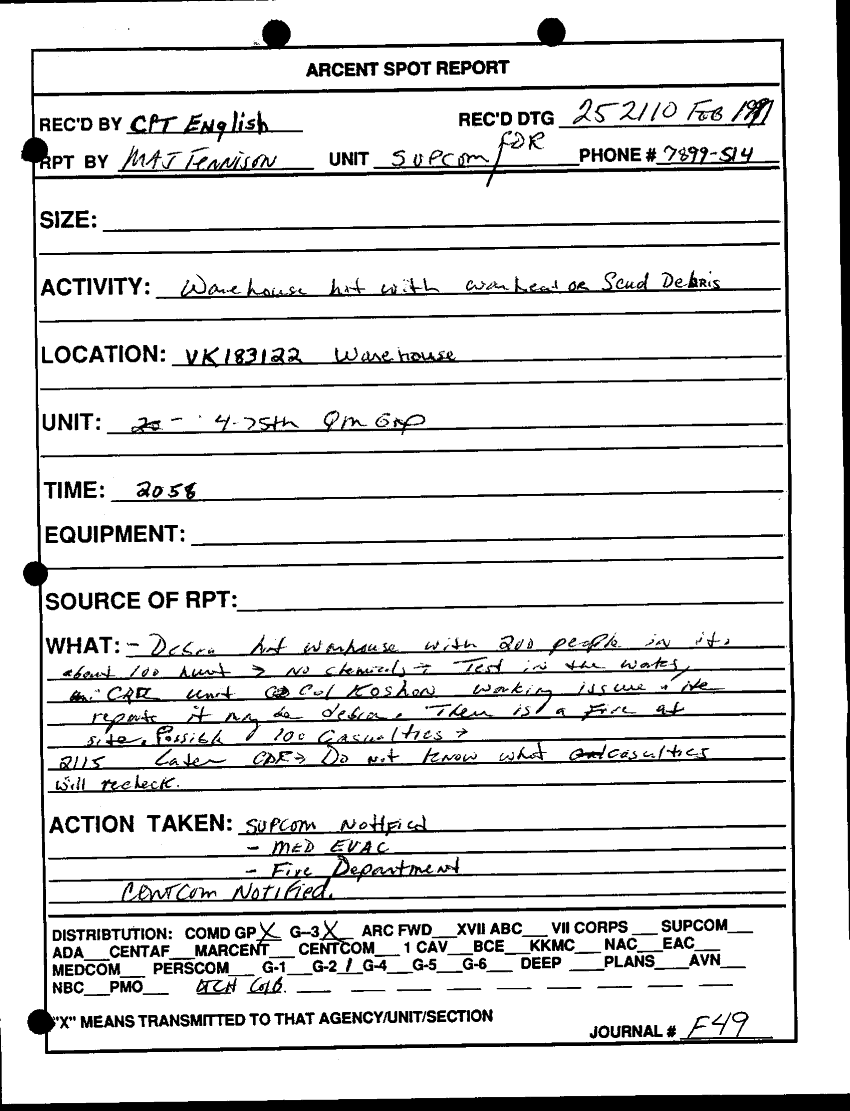 ARCENT SPOT REPORT
REC'D BY CPT English REC'D DTG 252110 Feb 1991
RPT BY MAJ Tennison UNIT SUPCOM/ PHONE # 7899-514
SIZE:
ACTIVITY: Warehouse hit with warhead or Scud Debris
LOCATION: VK183122 Warehouse
UNIT: 4-75th Qm Grp
TIME: 2058
EQUIPMENT:
SOURCE OF RPT:
WHAT: - Debra hit warhouse with 200 people in it.
about 100 hurt → No chemicals Test in the works,
unit Col Koshon working issue He
reports it may be debra. There is a Fire at
site. Possibl 100 Casualties →
2115 Later Do not know what casualties
will recheck.
ACTION TAKEN: SUPCOM Notified
- MED EVAC
- Fire Department
CENTCOM Notified.
DISTRIBTUTION: COMD GP X G–3 X ARC FWD XVII ABC VII CORPS SUPCOM
ADA CENTAF MARCENT CENTCOM 1 CAV BCE KKMC NAC EAC
MEDCOM PERSCOM G-1 G-2 / G-4 G-5 G-6 DEEP PLANS AVN
NBC PMO
"X" MEANS TRANSMITTED TO THAT AGENCY/UNIT/SECTION
JOURNAL # F49